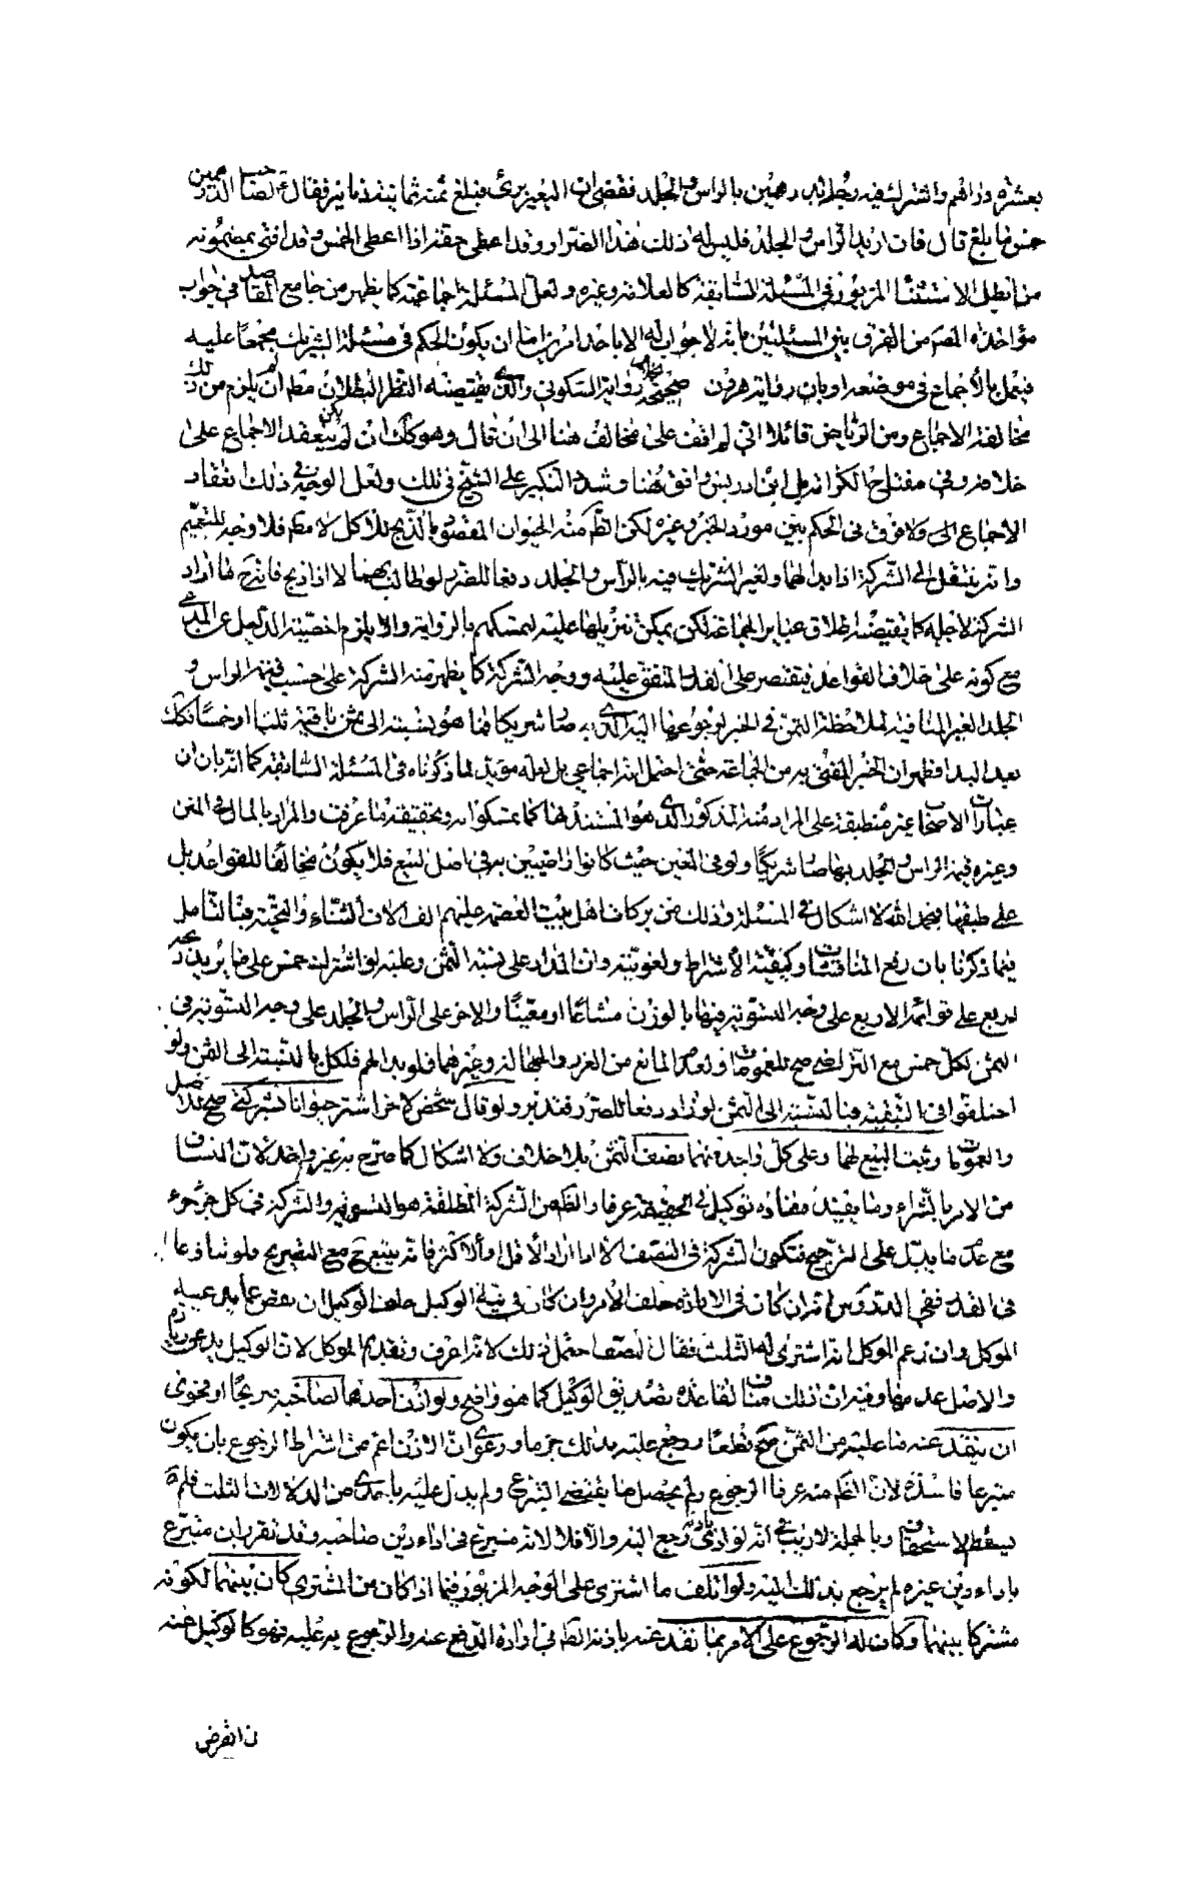 بعشرة دراهم واشترك فيه رجل بدرهمين بالراس والجلد فقضى ان البعير برئ فبلغ ثمنه ثمانية دنانير فقال لصاحب الدرهمين
خمس ما بلغ قال فان اريد الراس والجلد فليس له ذلك هذا الضرار وقد اعطى حقه اذا اعطى الخمس وقد افتى بمضمونه
من ابطل الاستثناء المزبور في المسئلة السابقة كالعلامة وغيره ولعل المسئلة اجماعية كما يظهر من جامع المقاصد في جواب
مؤاخذة المص من الفرق بين المسئلتين بانه لا جواب له الا باحد امرين اما ان يكون الحكم في مسئلة الشريك مجمعا عليه
فيعمل بالاجماع في موضعه او بان رواية هرون صحيحة بخلاف رواية السكوني والذي يقتضيه النظر البطلان مط ان لم يلزم من ذلك
مخالفة الاجماع ومن الرياض قائلا اني لم اقف على مخالف هنا الى ان قال وهو كك ان لم ينعقد الاجماع على
خلافه وفي مفتاح الكرامة بل ابن ادريس وافق هنا وشدد النكير على الشيخ في تلك ولعل الوجه في ذلك انعقاد
الاجماع الى ولا فرق في الحكم بين مورد الخبر وغيره لكن الظ منه الحيوان المقصود بالذبح للاكل لا مط فلا وجه للتعميم
وانه ينتقل الى الشركة اذا بدا لهما ولغير الشريك فيه بالراس والجلد دفعا للضرر لو طالب بهما لا اذا ذبح فانه ح لهما اراد
الشركة لاجله كما يقتضيه اطلاق عبائر الجماعة لكن يمكن تنزيلها عليه لتمسكهم بالرواية والا يلزم اخصية الدليل عن المدعى
مع كونه على خلاف القواعد فيقتصر على القدر المتفق عليه ووجه الشركة كما يظهر منه الشركة على حسب قيمة الراس و
الجلد الغير المنافية لملاحظة الثمن في الخبر لرجوعها اليه الذي به صار شريكا فما هو نسبته الى ثمن باقيه ثلثا او خمسا كك
بعد البدا فظهر ان الخبر المفتى به من الجماعة حتى احتمل انه اجماعي بل لعله مؤيد لما ذكرناه في المسئلة السابقة كما انه بان ان
عبارات الاصحاب غير منطبقة على المراد منه المذكور الذي هو المستند لها كما تمسكوا به وتحقيقه ما عرفت والمراد بالمال في المتن
وغيره قيمة الراس والجلد بها صار شريكا ولو في الغبن حيث كانوا راضيين به في اصل البيع فلا يكون مخالفا للقواعد بل
على طبقها فبحمد الله لا اشكال في المسئلة وذلك من بركات اهل بيت العصمة عليهم الف الاف الثناء والتحية فبالتامل
فيما ذكرنا بان رفع المنافيات وكيفية الاشتراط ولغويته وان المدار على نسبة الثمن وعليه لو اشترك خمس على ما يريد
اربع على قوائمه الاربع على وجه التسوية فيها بالوزن مشاعا او معينا والاخر على الراس والجلد على وجه التسوية في
الثمن لكل خمس مع التراضي صح للعمومات وعدم المانع من الغرر والجهالة وغيرهما فلو بدا لهم فلكل بالنسبة الى الثمن ولو
اختلفوا في القيمة فبالنسبة الى الثمن لو زاد دفعا للضرر فتدبر ولو قال شخص لاخر اشتر حيوانا بشركتي صح للاصل
والعمومات وثبت البيع لهما وعلى كل واحد منهما نصف الثمن بلا خلاف ولا اشكال كما صرح به غير واحد لان المنساق
من الامر بالشراء وما يفيد مفاده توكيل في الحقيقة عرفا والظ من الشركة المطلقة هو التسوية والشركة في كل جزء جزء
مع عدم ما يدل على الترجيح فتكون الشركة في النصف الا اذا اراد الاقل او الاكثر فانه يتبع ح مع التصريح فلو تنازعا
في القدر ففي الدروس انه ان كان في الارادة حلف الامر وان كان في نية الوكيل حلف الوكيل ان نقص عما يدعيه
الموكل وان زعم الموكل انه اشترى له الثلث فقال النصف احتمل ذلك لانه اعرف وتقديم الموكل لان الوكيل يدعي زيادة
والاصل عدمها وفيه ان ذلك مناف لقاعدة تصديق الوكيل كما هو واضح ولو اذن احدهما لصاحبه صريحا او فحوى
ان ينقد عنه ما عليه من الثمن صح قطعا ورجع عليه بذلك جزما ودعوى ان الاذن اعم من اشتراط الرجوع بان يكون
متبرعا فاسدة لان الظ منه عرفا الرجوع ولم يحصل ما يقتضي التبرع ولم يدل عليه باحدى من الدلالات الثلث فلم
يسقط الاستحقاق وبالجملة لا ريب في انه لو ادى باذنه رجع اليه والا فلا لانه متبرع في اداء دين صاحبه وقد تقرر ان متبرع
باداء دين غيره لم يرجع بذلك اليه ولو تلف ما اشترى على الوجه المزبور فيما اذا كان من المشتري كان بينهما لكونه
مشتركا بينهما وكان له الرجوع على الامر بما نقد عنه باذنه الظ في ارادة الدفع عنه والرجوع به عليه فهو كالوكيل عنه
في القرض